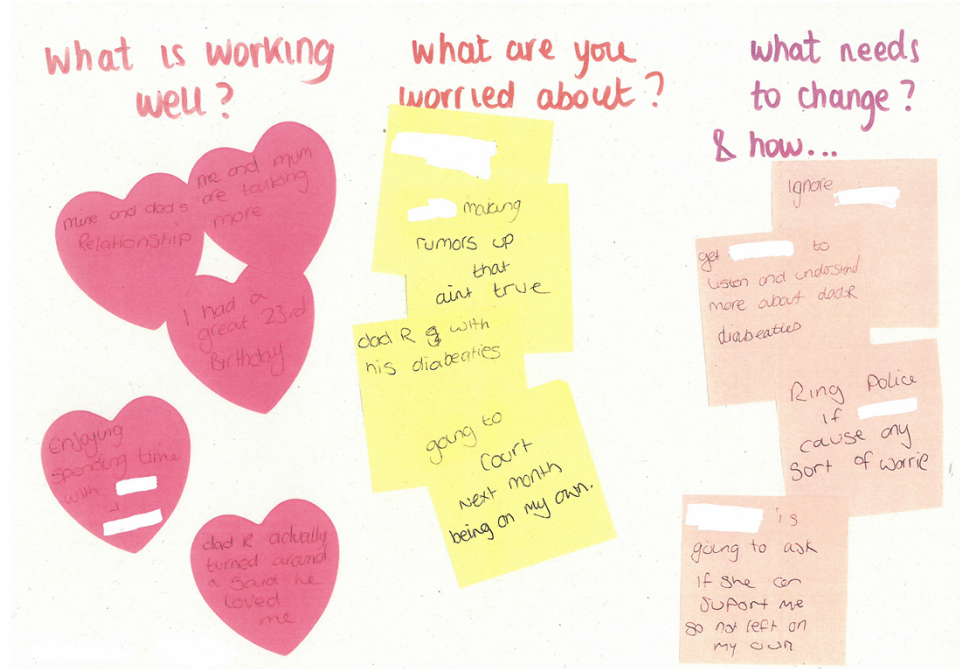 What is working
well?
mine and dads
Relationship
me and mum
are talking
more
I had a
great 23rd
Birthday
Enjoying
spending time
with
+
dad R actually
turned around
a said he
loved
me
what are you
worried about?
making
rumors up
that
aint true
dad R with
his diabeaties
going to
court
next month
being on my own.
what needs
to change?
& how...
Ignore
get to
listen and understand
more about dad R
diabeaties
Ring Police
if
cause any
sort of worrie
is
going to ask
if she can
suport me
so not left on
my own